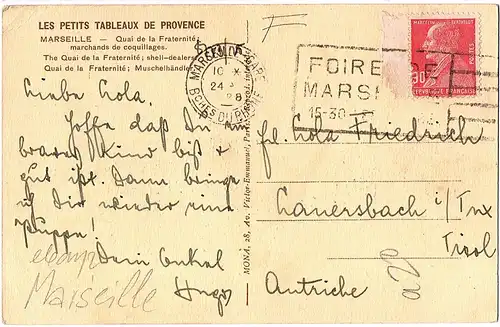 LES PETITS TABLEAUX DE PROVENCE
MARSEILLE — Quai de la Fraternité;
marchands de coquillages.
The Quai de la Fraternité; shell-dealers
Quai de la Fraternité; Muschelhändler
Liebe Lola,
Hoffe daß Du ein
braves Kind bist &
gut ißt. Dann bringe
ich Dir wieder eine
Puppe!
Dein Onkel
Hugo
Marseille
MONA, 28, Av. Victor-Emmanuel,
MARSEILLE GARE
10 X
24
28
BCHES DU RHONE
FOIRE DE
MARSEILLE
15-30
MARCELIN BERTHELOT
90c
REPUBLIQUE FRANÇAISE
F
Frl. Lola Friedrich
Lanersbach i/ Tux
Tirol
Autriche
a 20